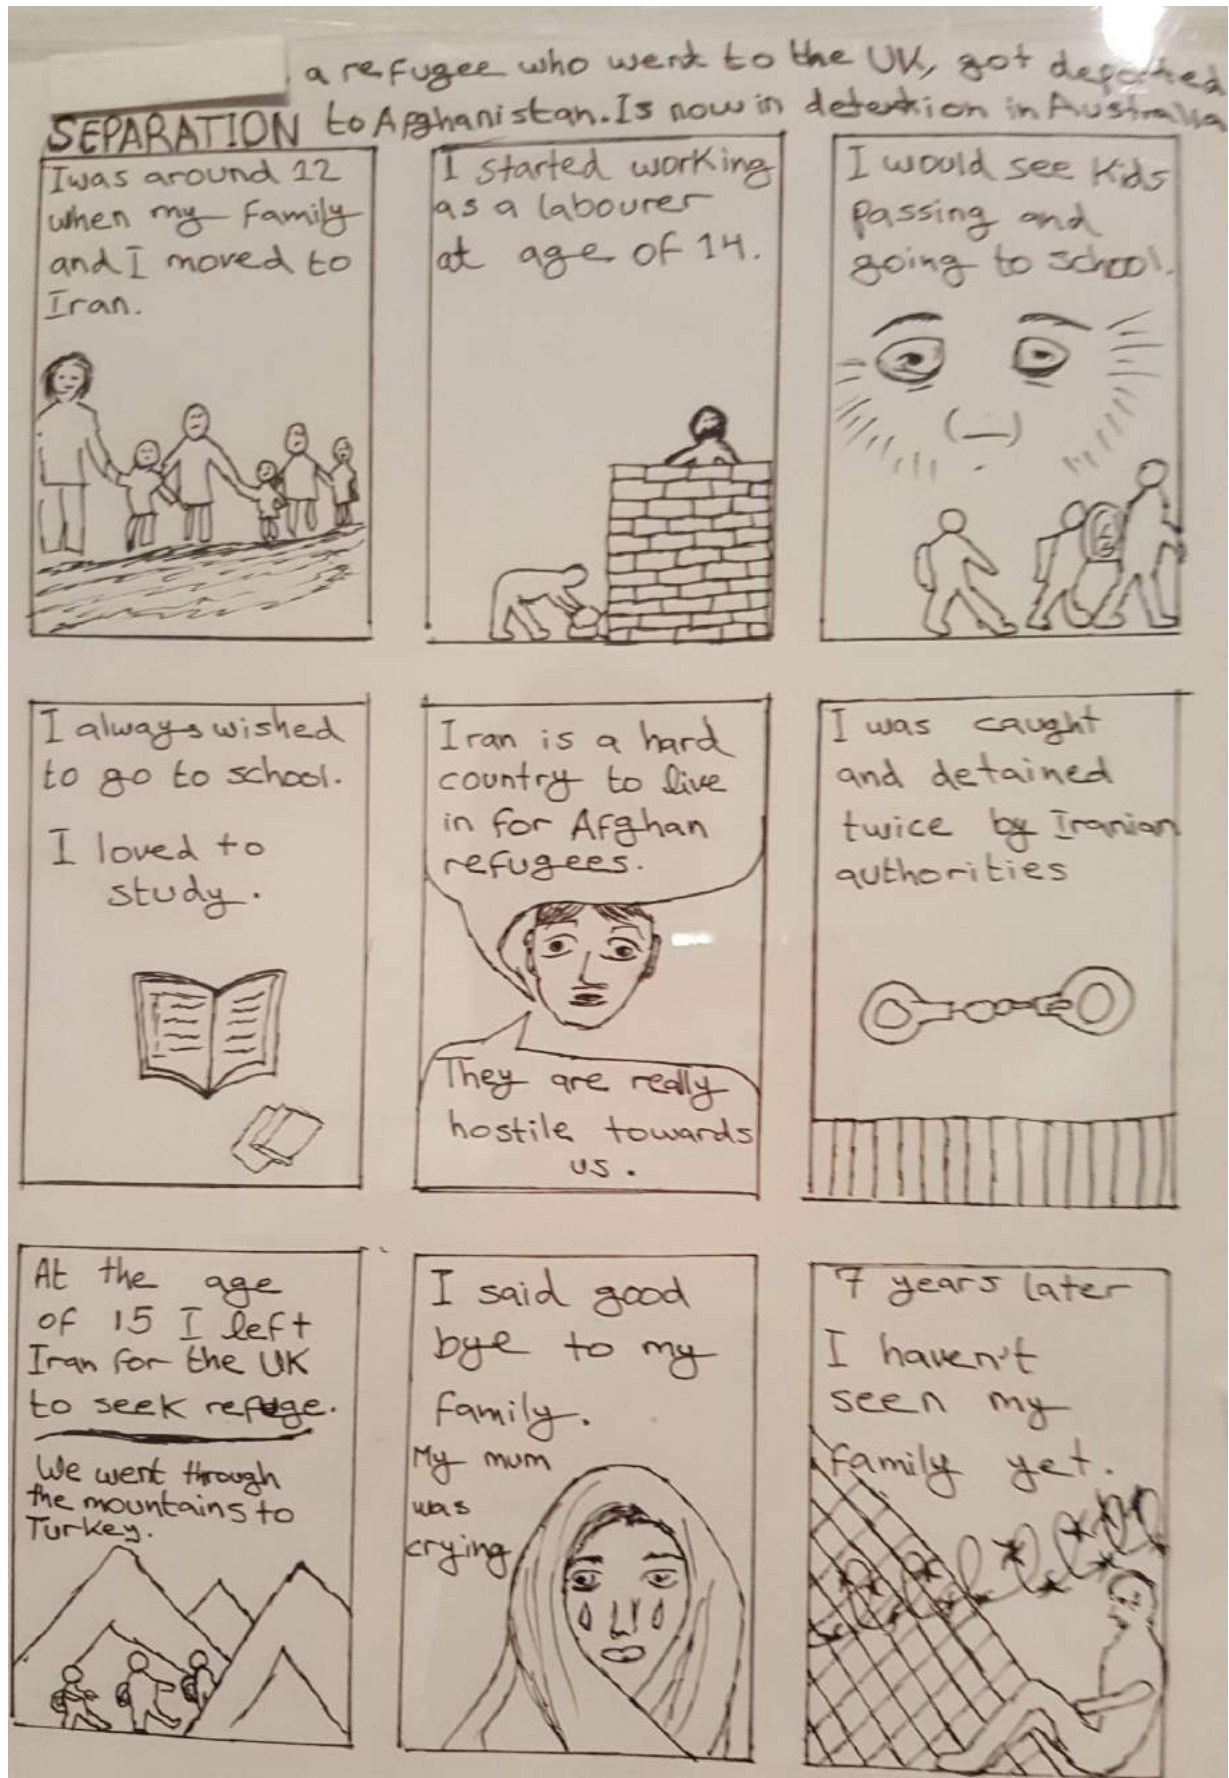 a refugee who went to the UK, got deported
SEPARATION to Afghanistan. Is now in detention in Australia
I was around 12
when my family
and I moved to
Iran.
I started working
as a labourer
at age of 14.
I would see kids
passing and
going to school.
I always wished
to go to school.
I loved to
study.
Iran is a hard
country to live
in for Afghan
refugees.
They are really
hostile towards
us.
I was caught
and detained
twice by Iranian
authorities
At the age
of 15 I left
Iran for the UK
to seek refuge.
We went through
the mountains to
Turkey.
I said good
bye to my
family.
My mum
was
crying
7 years later
I haven't
seen my
family yet.